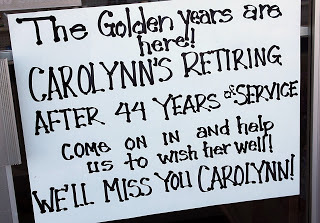 The Golden years are
here!!
CAROLYNN'S RETIRING
AFTER 44 YEARS of SERVICE
COME ON IN and help
us to wish her well!
WE'LL MISS YOU CAROLYNN!